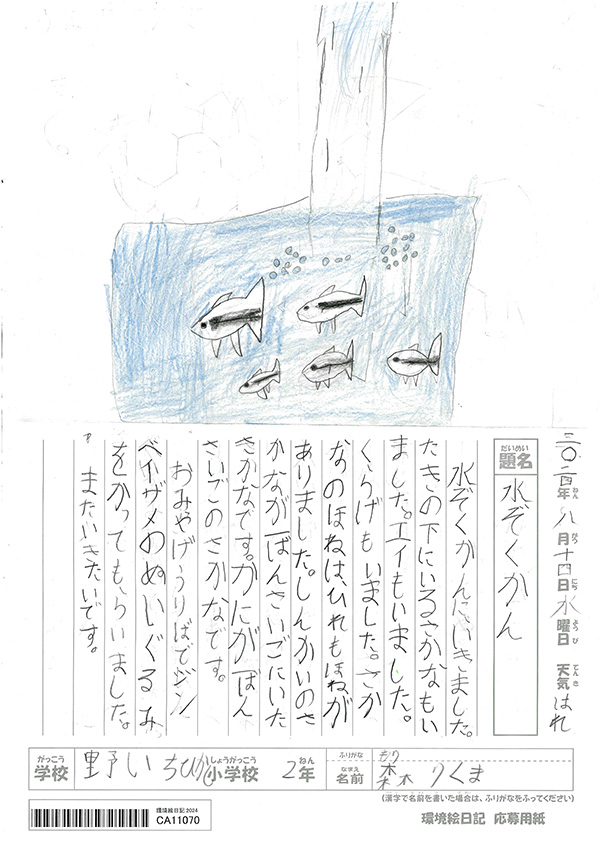 二〇二四年ねん 八月がつ 十四日にち 水曜日ようび 天気てんき はれ
だいめい
題名
水ぞくかん
水ぞくかんにいきました。
たきの下にいるさかなもい
ました。エイもいました。
くらげもいました。さか
なのほねは、ひれもほねが
ありました。しんかいのさ
かながいばんさいごにいた
さかなです。かにがいばん
さいごのさかなです。
おみやげうりばでジン
ベイザメのぬいぐるみ
をかってもらいました。
またいきたいです。
がっこう
学校
しょうがっこう
小学校
2年ねん
ふりがな
なまえ
名前
もり
森 りくま
(漢字で名前を書いた場合は、ふりがなをふってください)
環境絵日記2024
CA11070
環境絵日記 応募用紙